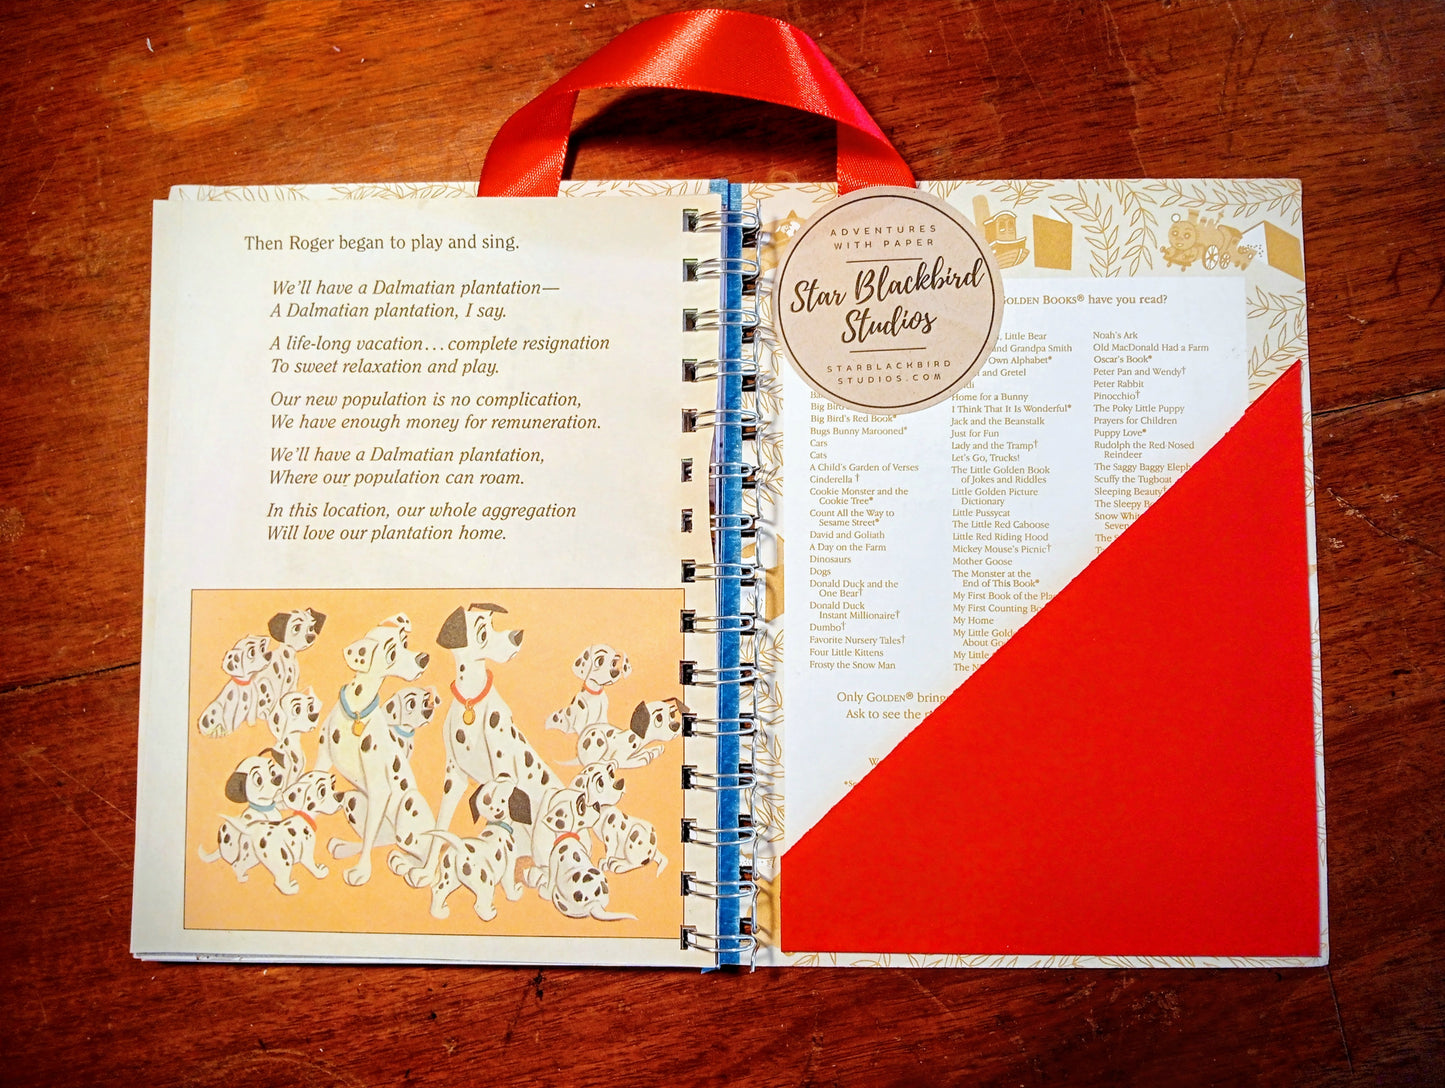 Then Roger began to play and sing.
We'll have a Dalmatian plantation—
A Dalmatian plantation, I say.
A life-long vacation...complete resignation
To sweet relaxation and play.
Our new population is no complication,
We have enough money for remuneration.
We'll have a Dalmatian plantation,
Where our population can roam.
In this location, our whole aggregation
Will love our plantation home.
ADVENTURES
WITH PAPER
Star Blackbird
Studios
STARBLACKBIRD
STUDIOS.COM
GOLDEN BOOKS® have you read?
Big Bird's Red Book*
Bugs Bunny Marooned*
Cars
Cats
A Child's Garden of Verses
Cinderella †
Cookie Monster and the
Cookie Tree*
Count All the Way to
Sesame Street*
David and Goliath
A Day on the Farm
Dinosaurs
Dogs
Donald Duck and the
One Bear†
Donald Duck
Instant Millionaire†
Dumbo†
Favorite Nursery Tales†
Four Little Kittens
Frosty the Snow Man
Little Bear
and Grandpa Smith
Own Alphabet*
and Gretel
Home for a Bunny
I Think That It Is Wonderful*
Jack and the Beanstalk
Just for Fun
Lady and the Tramp†
Let's Go, Trucks!
The Little Golden Book
of Jokes and Riddles
Little Golden Picture
Dictionary
Little Pussycat
The Little Red Caboose
Little Red Riding Hood
Mickey Mouse's Picnic†
Mother Goose
The Monster at the
End of This Book*
My First Book of the
My First Counting
My Home
My Little
About
My Little
The
Noah's Ark
Old MacDonald Had a Farm
Oscar's Book*
Peter Pan and Wendy†
Peter Rabbit
Pinocchio†
The Poky Little Puppy
Prayers for Children
Puppy Love*
Rudolph the Red Nosed
Reindeer
The Saggy Baggy
Scuffy the Tugboat
Sleeping Beauty†
The Sleepy
Snow
The
Only GOLDEN®
Ask to see the